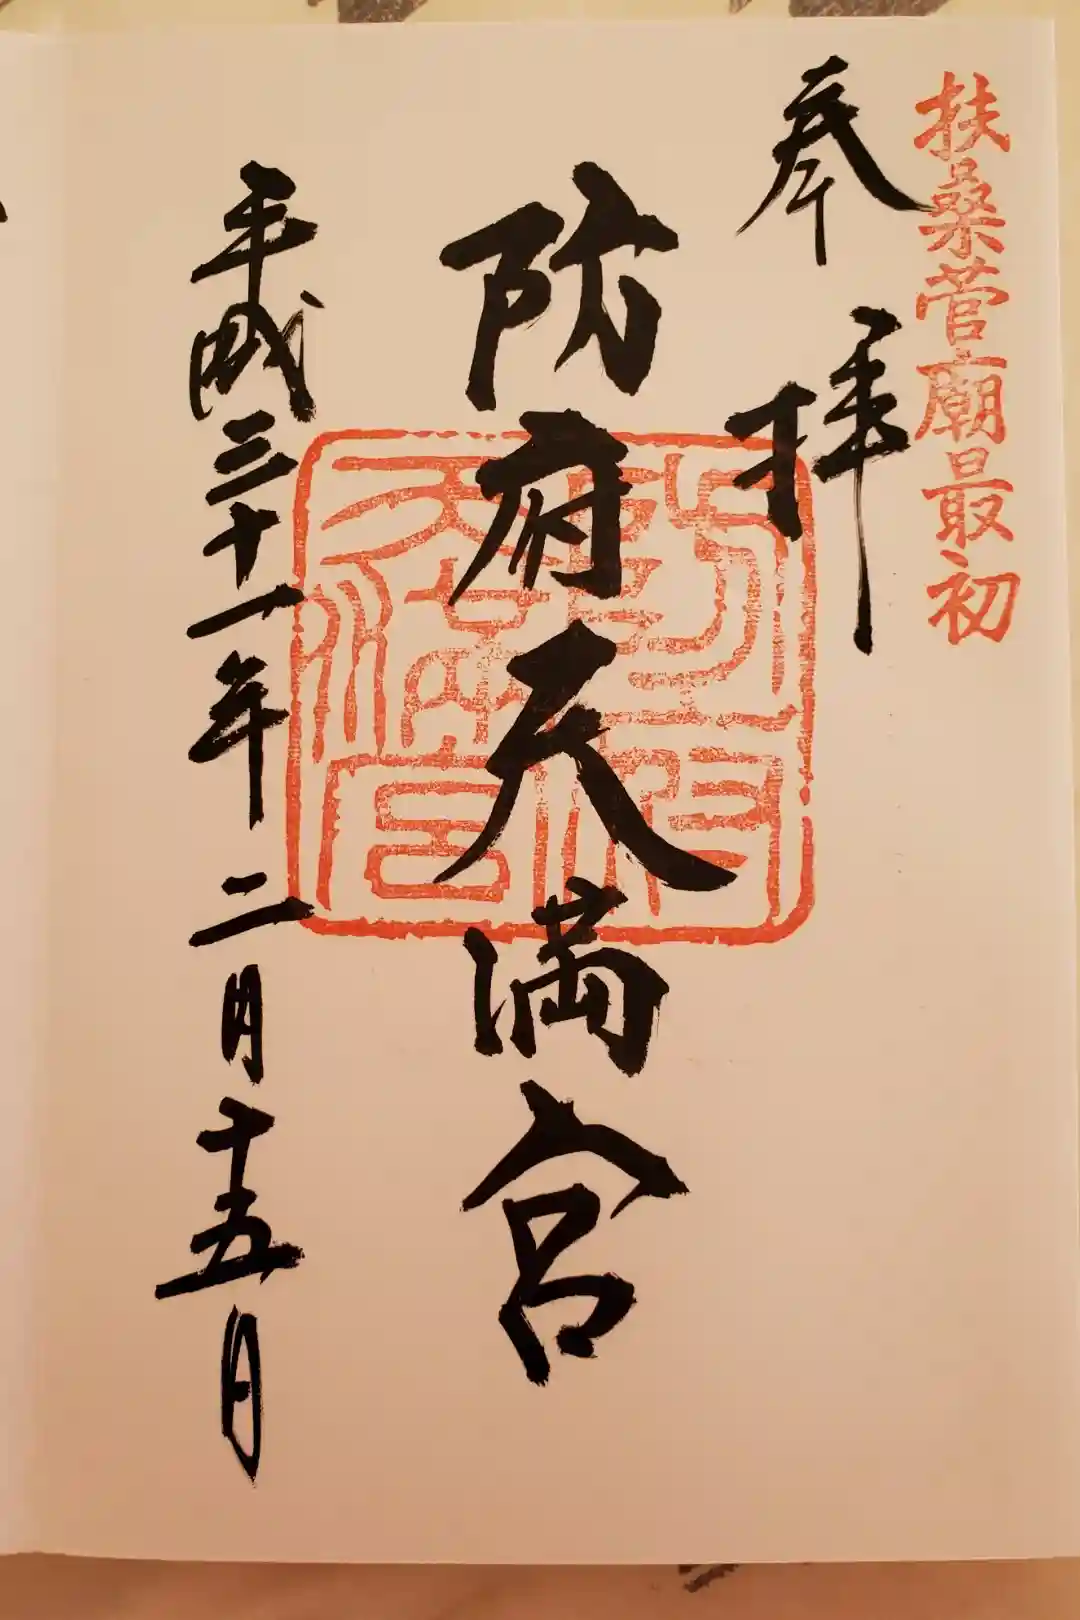 扶桑菅廟最初
奉拝
防府天満宮
平成三十一年二月十五日